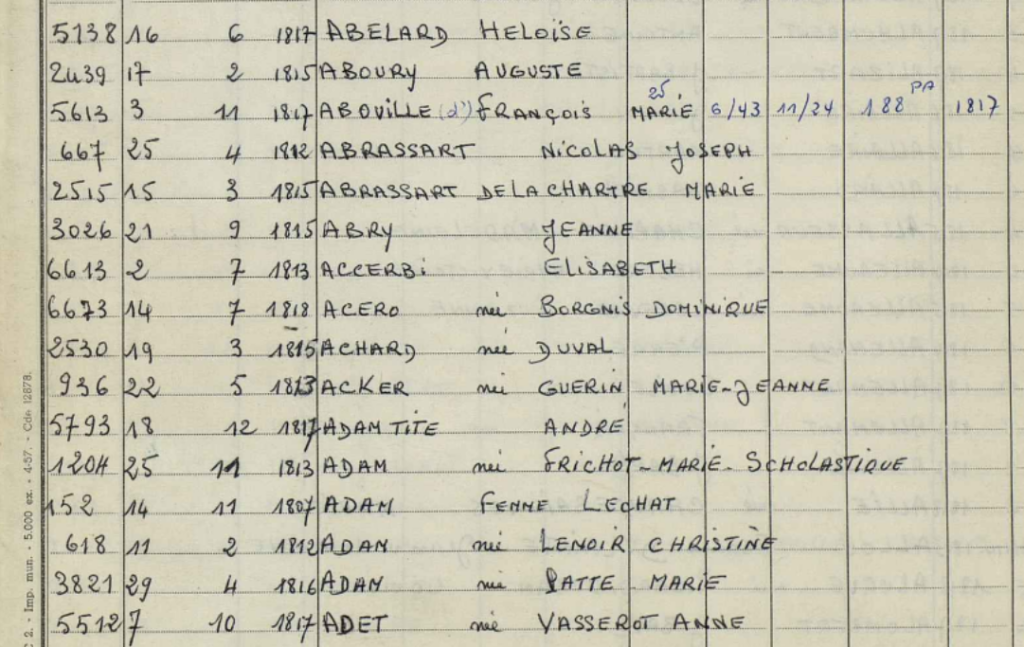 5138 16 6 1817 ABELARD HELOÏSE
2439 17 2 1815 ABOURY AUGUSTE
5613 3 11 1817 ABOVILLE (d') FRANÇOIS MARIE 25 6/43 11/24 188 PA 1817
667 25 4 1812 ABRASSART NICOLAS JOSEPH
2515 15 3 1815 ABRASSART DELACHARTRE MARIE
3026 21 9 1815 ABRY JEANNE
6613 2 7 1813 ACCERBI ELISABETH
6673 14 7 1818 ACERO née BORGNIS DOMINIQUE
2530 19 3 1815 ACHARD née DUVAL
936 22 5 1813 ACKER née GUERIN MARIE-JEANNE
5793 18 12 1817 ADAM TITE ANDRÉ
1204 25 11 1813 ADAM née FRICHOT-MARIE-SCHOLASTIQUE
152 14 11 1807 ADAM FENNE LECHAT
618 11 2 1812 ADAM née LENOIR CHRISTINE
3821 29 4 1816 ADAM née PATTE MARIE
5512 7 10 1817 ADET née VASSEROT ANNE
C 2. - Imp. mun. - 5.000 ex. - 4-57. - Cde 12878.